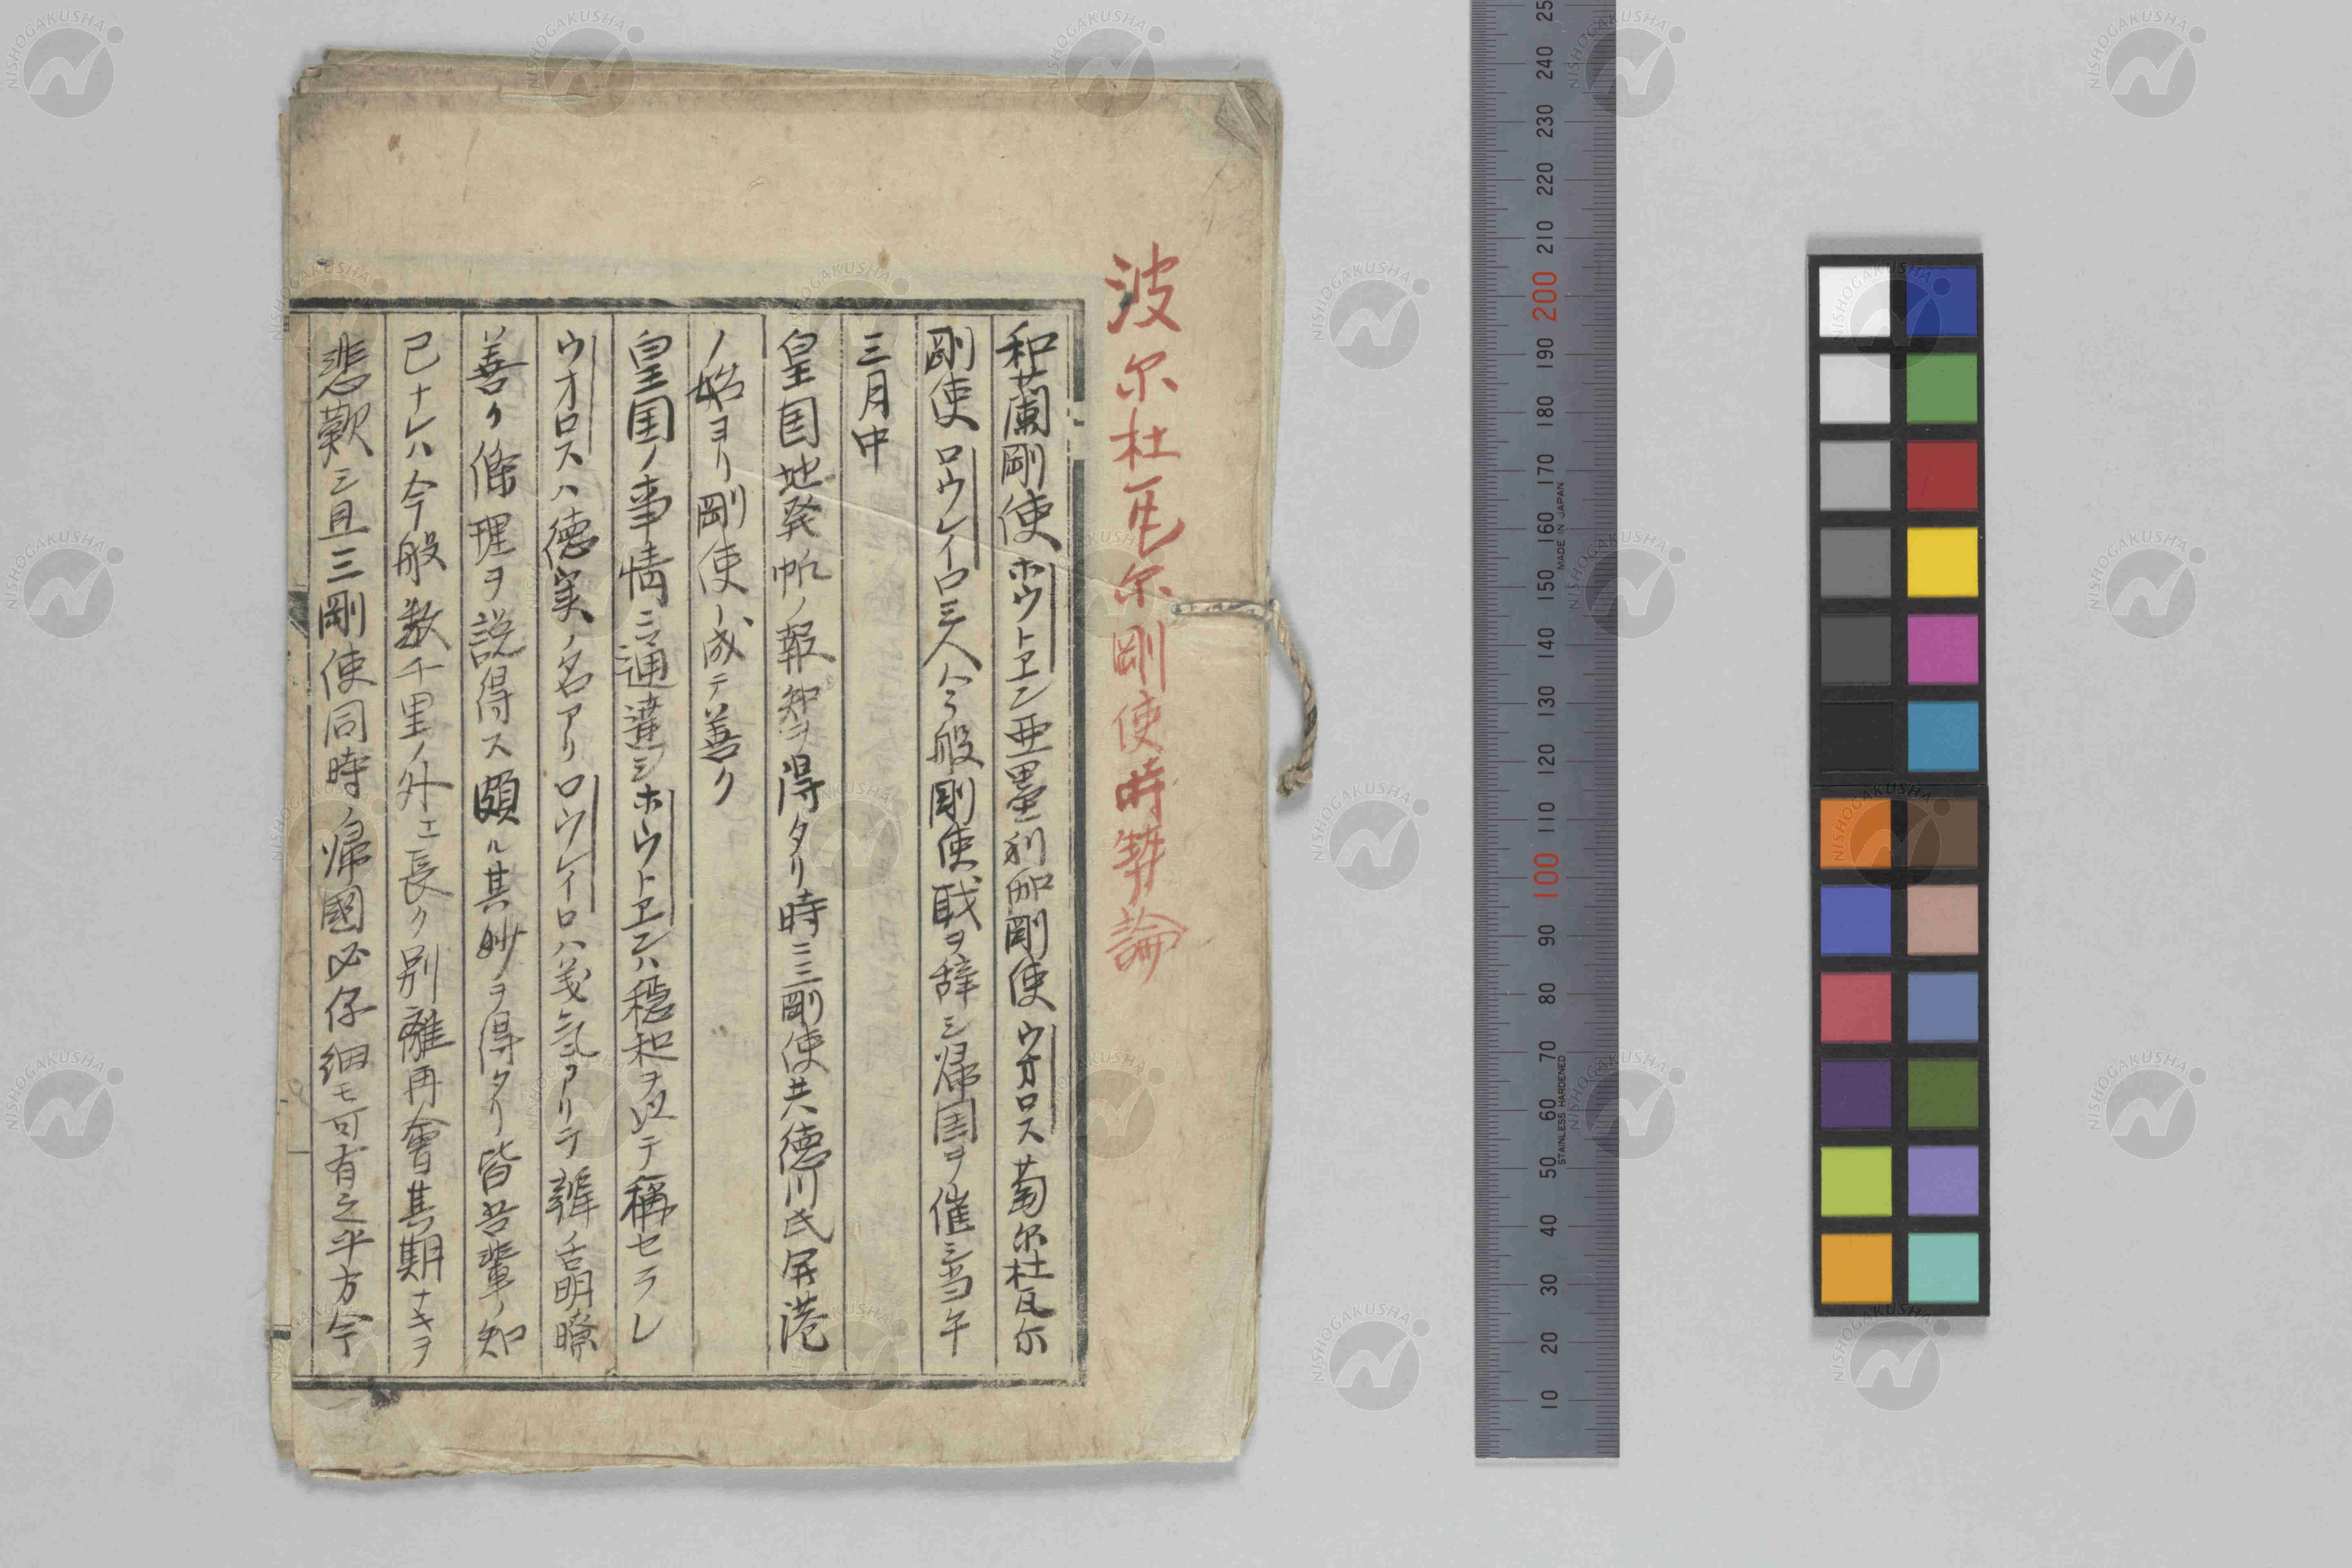 波尓杜瓦尓剛使時弊論
和蘭剛使ホウトヱン亜墨利伽剛使ウオロス葡尓杜瓦尓
剛使ロウレイロ三人今般剛使職ヲ辞シ帰国ヲ催シ当年
三月中
皇国地発帆ノ報知ヲ得タリ時ニ三剛使共徳川氏屏港
ノ始ヨリ剛使ト成テ善ク
皇国ノ事情ニ通達シホウトヱンハ穏和ヲ以テ稱セラレ
ウオロスハ徳実ノ名アリロウレイロハ義気アリテ譁舌明瞭
善ク條理ヲ説得ス頗ル其妙ヲ得タリ皆吾輩ノ知
己ナレハ今般数千里ノ外エ長ク別離再會其期ナキヲ
悲歎シ且三剛使同時ノ帰國必仔細モ可有之乎方今
250
240
230
220
210
200
190
180
170
160
150
140
130
120
110
100
90
80
70
60
50
40
30
20
10
MADE IN JAPAN
STAINLESS HARDENED
NISHOGAKUSHA